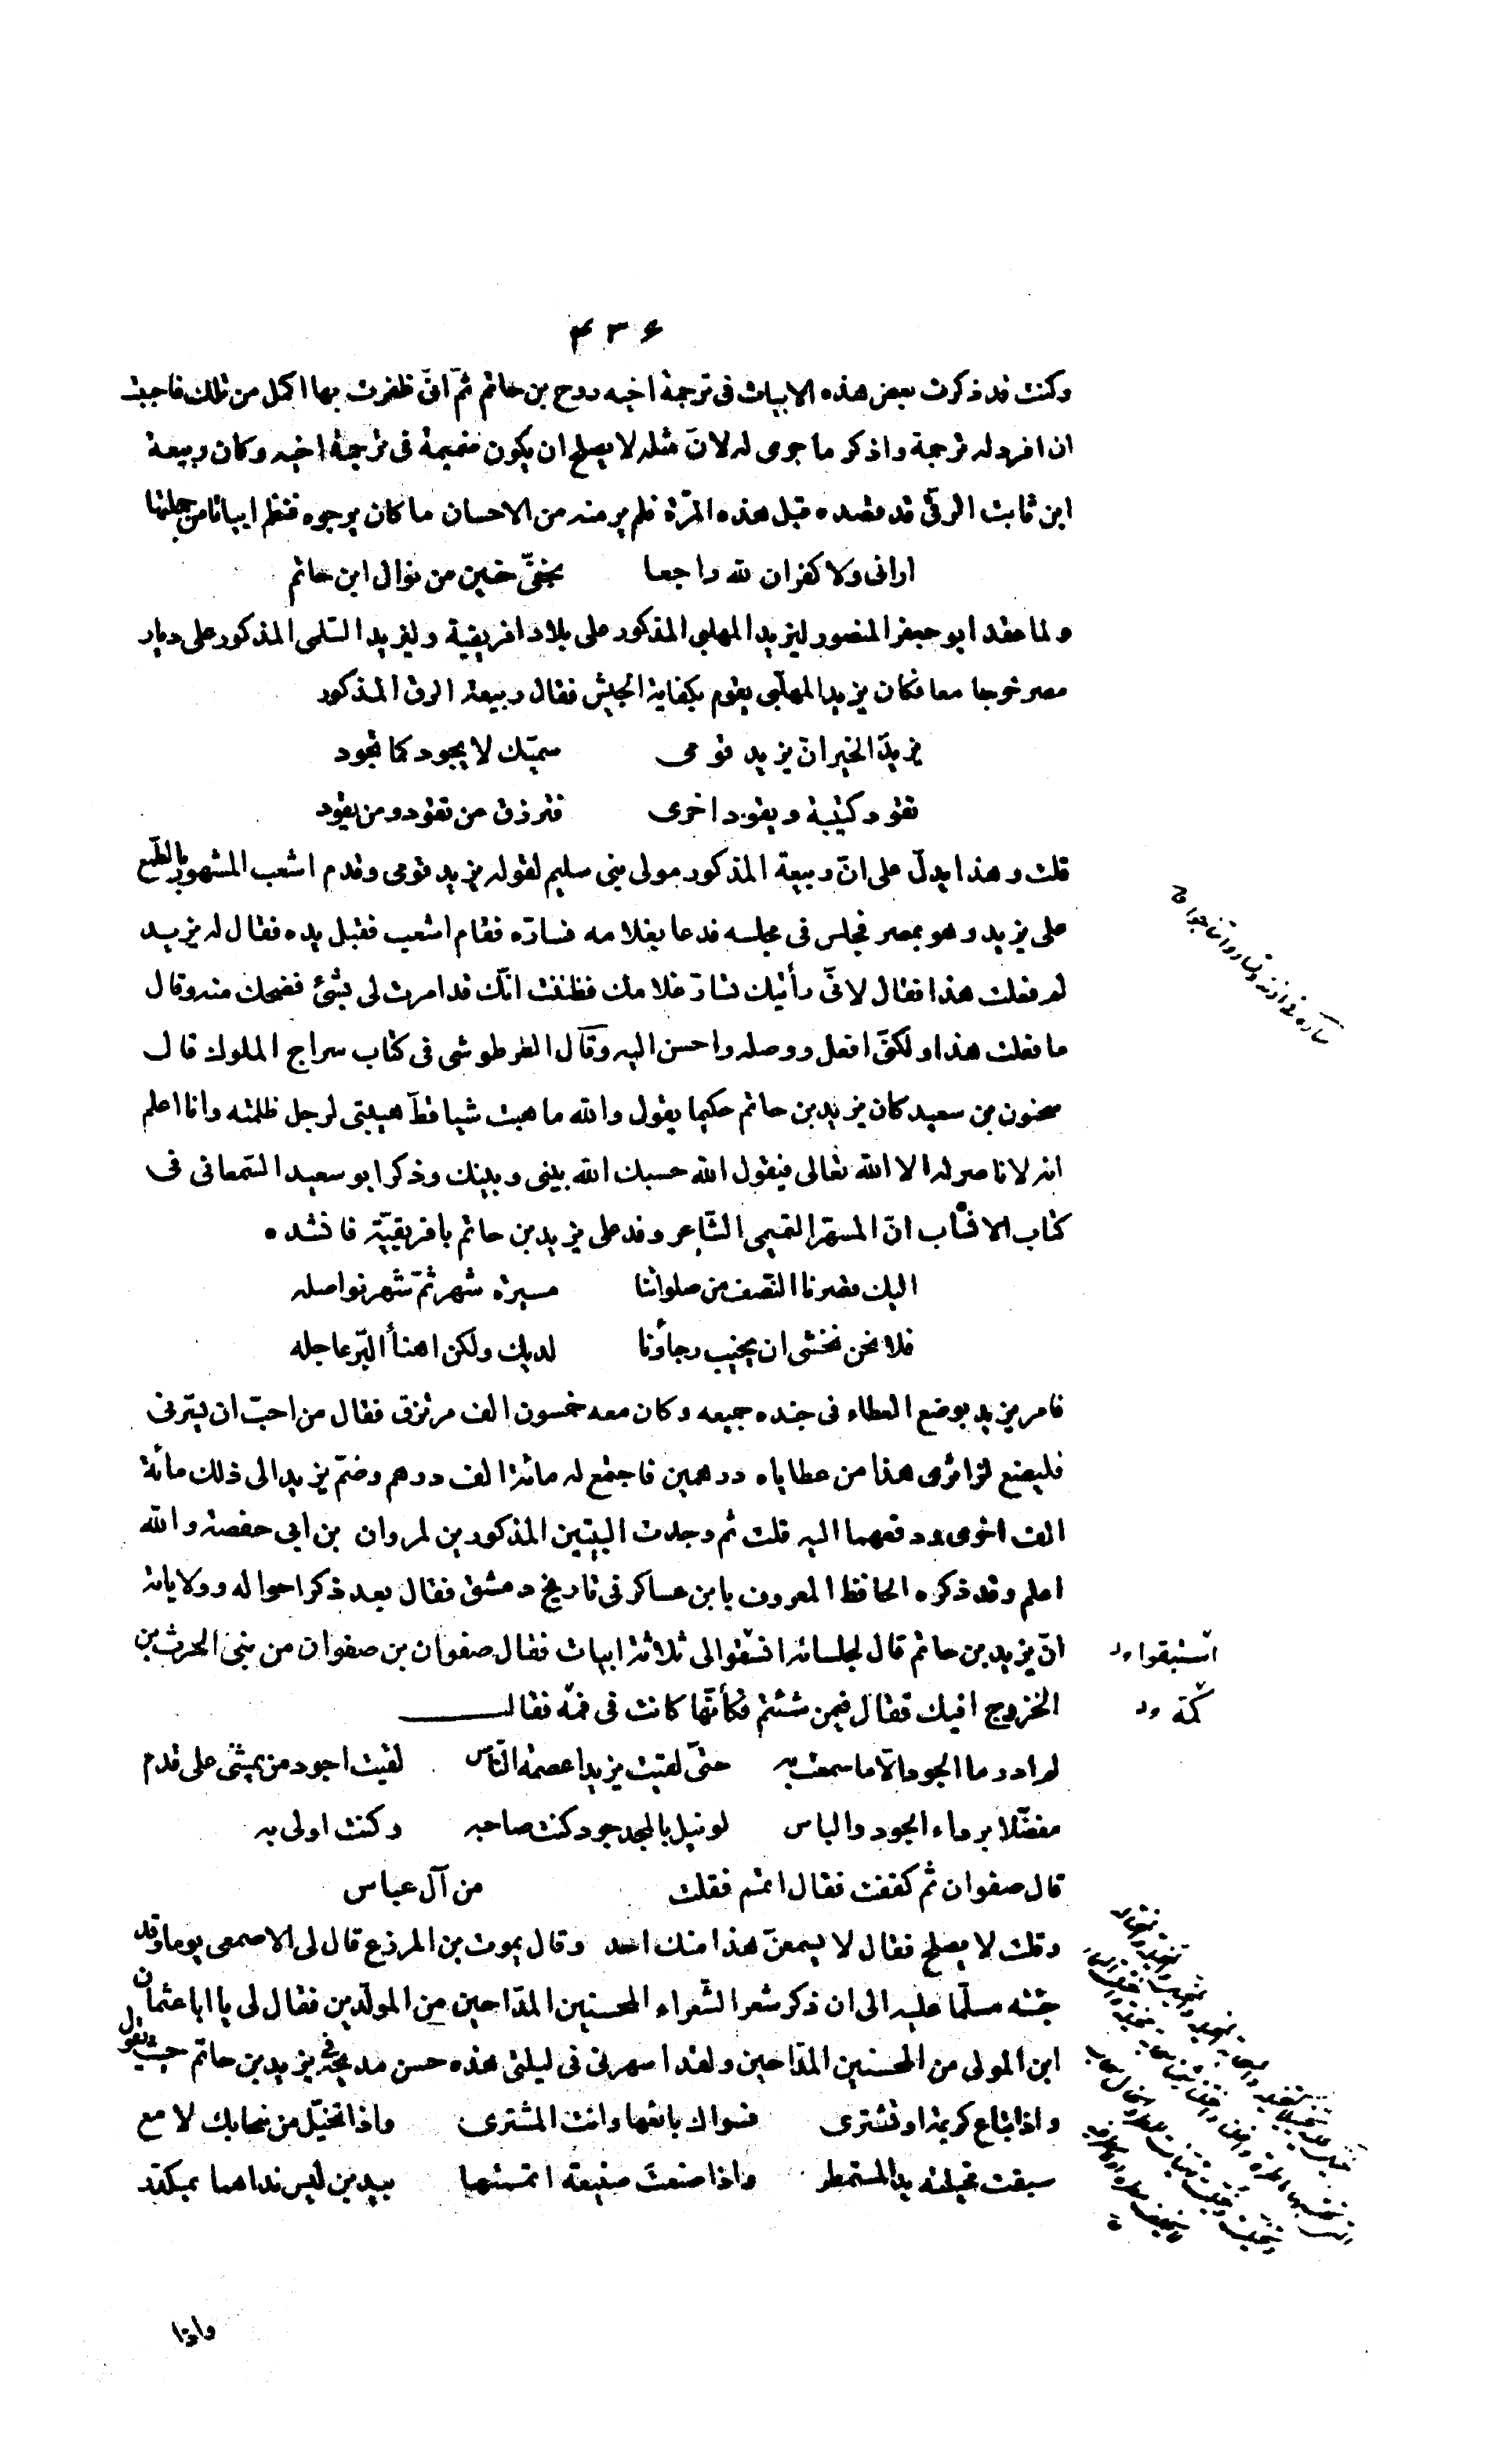 ۴۳۶
وكنت قد ذكرت بعض هذه الابيات فى ترجمة اخيه روح بن حاتم ثمّ انّى ظفرت بها اكمل من تلك فاحببت
ان افرد له ترجمة واذكر ما جرى له لانّ مثله لا يصلح ان يكون ضميمة فى ترجمة اخيه وكان ربيعة
ابن ثابت الرقّى قد قصده قبل هذه المرّة فلم ير منه من الاحسان ما كان يرجوه فنظم ابياتا من جملتها
ارانى ولا كفران لله راجعا بخفّى حنين من نوال ابن حاتم
ولما عقد ابو جعفر المنصور ليزيد المهلبى المذكور على بلاد افريقية وليزيد السّلمى المذكور على ديار
مصر خرجا معا فكان يزيد المهلّبى يقوم بكفاية الجيش فقال ربيعة الرقى المذكور
يزيد الخير انّ يزيد قومى سميّك لا يجود كما تجود
تقود كتيبة ويقود اخرى فترزق من تقود ومن يقود
قلت وهذا يدلّ على انّ ربيعة المذكور مولى بنى سليم لقوله يزيد قومى وقدم اشعب المشهور بالطّمع
على يزيد وهو بمصر فجلس فى مجلسه فدعا بغلامه فسارّه فقام اشعب فقبل يده فقال له يزيد
لم فعلت هذا فقال لانّى رأيتك تسارّ غلامك فظننت انّك قد امرت لى بشئ فضحك منه وقال
ما فعلت هذا ولكنّى افعل ووصله واحسن اليه وقال الطرطوشى فى كتاب سراج الملوك قال
سحنون بن سعيد كان يزيد بن حاتم حكيما يقول والله ما هبت شيا قطّ هيبتى لرجل ظلمته وانا اعلم
انه لا ناصر له الا الله تعالى فيقول الله حسبك الله بينى وبينك وذكر ابو سعيد السّمعانى فى
كتاب الانساب انّ المسهّر التميمى الشّاعر وفد على يزيد بن حاتم بافريقيّة فانشده
اليك قصرنا النّصف من صلواتنا مسيرة شهر ثمّ شهر نواصله
فلا نحن نخشى ان يخيب رجاؤنا لديك ولكن اهنأ البّر عاجله
فامر يزيد بوضع العطاء فى جنده جميعه وكان معه خمسون الف مرتزق فقال من احبّ ان يسّرنى
فليضع لزائرى هذا من عطاياه درهمين فاجتمع له مائة الف درهم وضمّ يزيد الى ذلك مائة
الف اخرى ودفعهما اليه قلت ثم وجدت البيتين المذكورين لمروان بن ابى حفصة والله
اعلم وقد ذكره الحافظ المعروف بابن عساكر فى تاريخ دمشق فقال بعد ذكر احواله وولاياته
انّ يزيد بن حاتم قال لجلسائه انسقوا الى ثلاثة ابيات فقال صفوان بن صفوان من بنى الحرث بن
استبقوا
الخزرج افيك فقال فيمن شئتم فكأنّها كانت فى فمّه فقال
كمّه
لم ادر ما الجود الّا ما سمعت به حتّى لقيت يزيدا عصمة النّاس لقيت اجود من يمشى على قدم
مفضّلا برداء الجود والباس لو نيل بالمجد جود كنت صاحبه وكنت اولى به
قال صفوان ثم كففت فقال اتمم فقلت من آل عباس
وقلت لا يصلح فقال لا يسمعنّ هذا منك احد وقال يموت بن المزرع قال لى الاصمعى يوما وقد
جئته مسلّما عليه الى ان ذكر شعر الشّعراء المحسنين المدّاحين من المولّدين فقال لى يا ابا عثمان
ابن المولى من المحسنين المدّاحين ولقد اسهرنى فى ليلتى هذه حسن مديحه فى يزيد بن حاتم حيث يقول
واذا تباع كريمة او تشترى فسواك بائعها وانت المشترى واذا تخيّل من سحابك لامع
سبقت مخيلته يد المستمطر واذا صنعت صنيعة اتممتها بيدين ليس نداهما بمكدّر
واذا